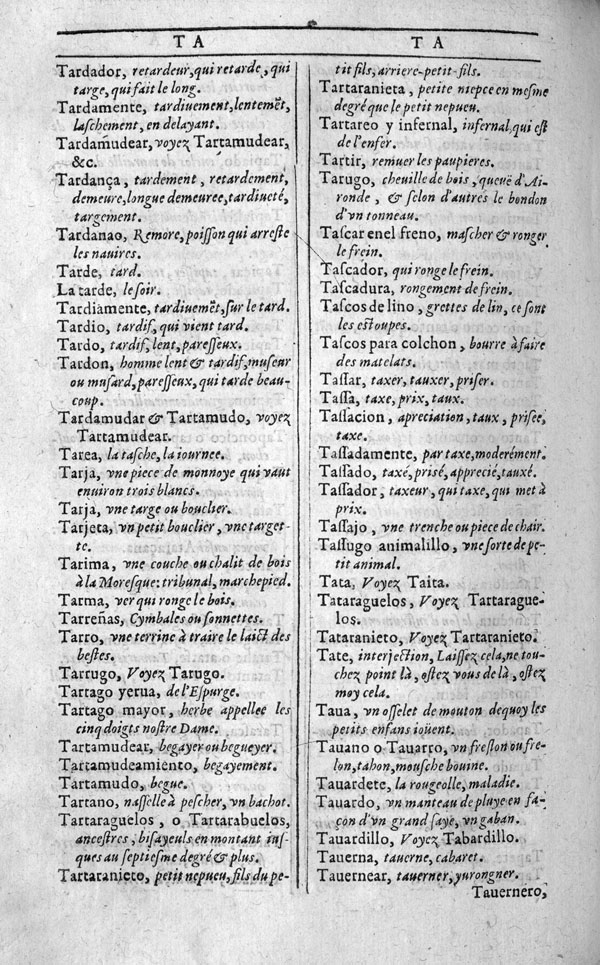 T A
Tardador, retardeur, qui retarde, qui
targe, qui fait le long.
Tardamente, tardiuement, lentemẽt,
laſchement, en delayant.
Tardamudear, voyez Tartamudear,
&c.
Tardança, tardement, retardement,
demeure, longue demeuree, tardiueté,
targement.
Tardanao, Remore, poiſſon qui arreſte
les nauires.
Tarde, tard.
La tarde, le ſoir.
Tardiamente, tardiuemẽt, ſur le tard.
Tardio, tardif, qui vient tard.
Tardo, tardif, lent, pareſſeux.
Tardon, homme lent & tardif, muſeur
ou muſard, pareſſeux, qui tarde beau-
coup.
Tardamudar & Tartamudo, voyez
Tartamudear.
Tarea, la taſche, la iournee.
Tarja, vne piece de monnoye qui vaut
enuiron trois blancs.
Tarja, vne targe ou bouclier.
Tarjeta, vn petit bouclier, vne target-
te.
Tarima, vne couche ou chalit de bois
à la Moreſque: tribunal, marchepied.
Tarma, ver qui ronge le bois.
Tarreñas, Cymbales ou ſonnettes.
Tarro, vne terrine à traire le laict des
beſtes.
Tarrugo, Voyez Tarugo.
Tartago yerua, de l'Eſpurge.
Tartago mayor, herbe appellee les
cinq doigts noſtre Dame.
Tartamudear, begayer ou begueyer.
Tartamudeamiento, begayement.
Tartamudo, begue.
Tartano, naſſelle à peſcher, vn bachot.
Tartaraguelos, o Tartarabuelos,
anceſtres, biſayeuls en montant iuſ-
ques au ſeptieſme degré & plus.
Tartaranieto, petit nepueu, fils du pe-
T A
tit fils, arriere-petit-fils.
Tartaranieta, petite niepce en meſme
degré que le petit nepueu.
Tartareo y infernal, infernal, qui eſt
de l'enfer.
Tartir, remuer les paupieres.
Tarugo, cheuille de bois, queuë d'Ai-
ronde, & ſelon d'autres le bondon
d'vn tonneau.
Taſcar en el freno, maſcher & ronger
le frein.
Taſcador, qui ronge le frein.
Taſcadura, rongement de frein.
Taſcos de lino, grettes de lin, ce ſont
les eſtoupes.
Taſcos para colchon, bourre à faire
des matelats.
Taſſar, taxer, tauxer, priſer.
Taſſa, taxe, prix, taux.
Taſſacion, apreciation, taux, priſee,
taxe.
Taſſadamente, par taxe, moderément.
Taſſado, taxé, priſé, apprecié, tauxé.
Taſſador, taxeur, qui taxe, qui met à
prix.
Taſſajo, vne trenche ou piece de chair.
Taſſugo animalillo, vne ſorte de pe-
tit animal.
Tata, Voyez Taita.
Tataraguelos, Voyez Tartarague-
los.
Tataranieto, Voyez Tartaranieto.
Tate, interjection, Laiſſez cela, ne tou-
chez point là, oſtez vous de là, oſtez
moy cela.
Taua, vn oſſelet de mouton dequoy les
petits enfans ioüent.
Tauano o Tauarro, vn freſlon ou fre-
lon, tahon, mouſche bouine.
Tauardete, la rougeolle, maladie.
Tauardo, vn manteau de pluye en fa-
çon d'vn grand ſaye, vn gaban.
Tauardillo, Voyez Tabardillo.
Tauerna, tauerne, cabaret.
Tauernear, tauerner, yurongner.
Tauernero,